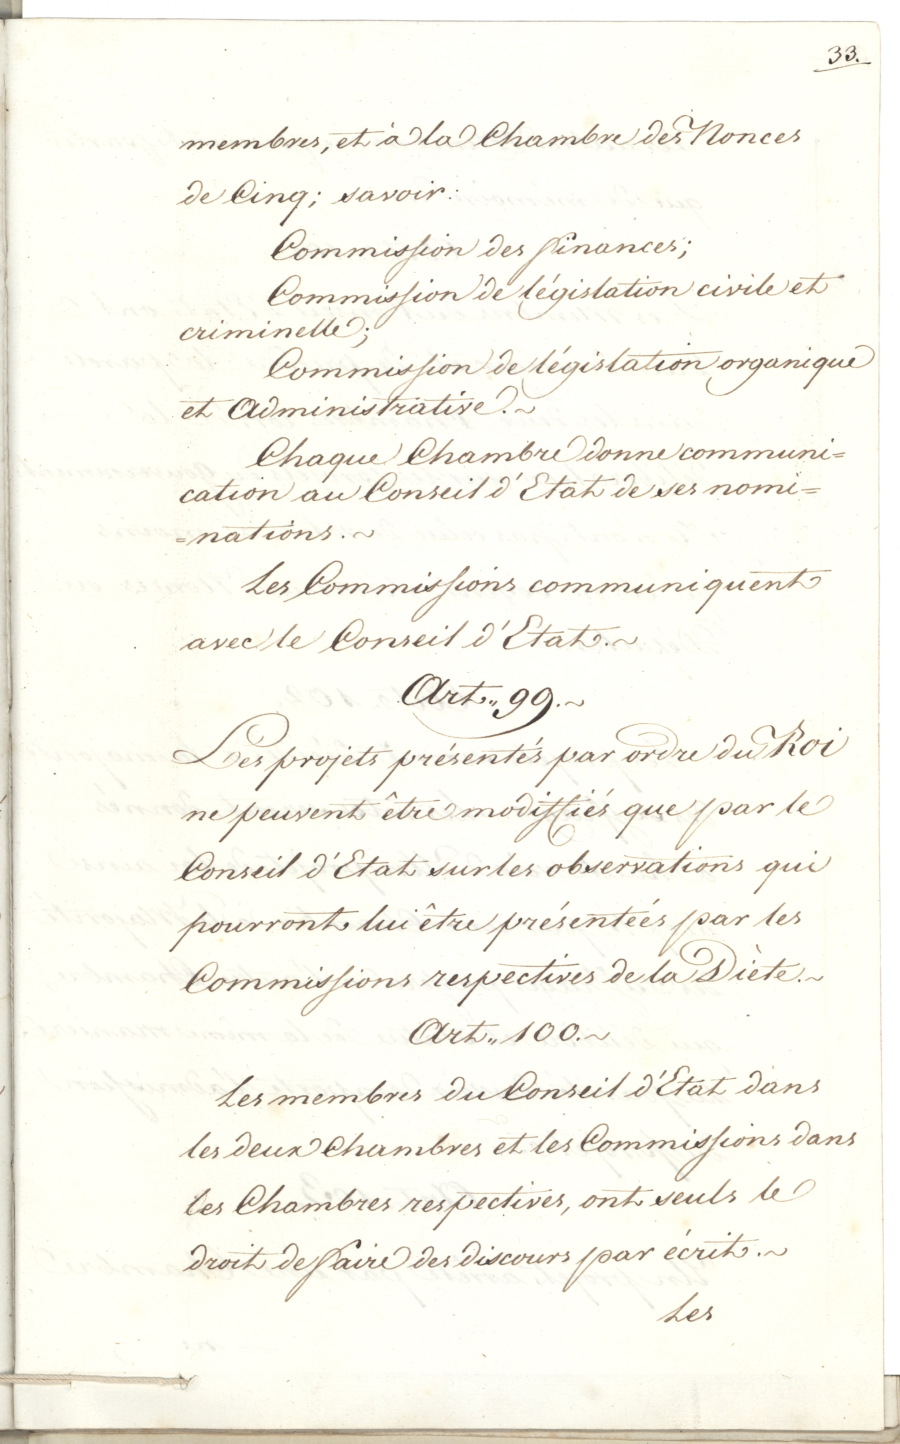 33.
membres, et à la Chambre des Nonces
de Cinq; savoir:
Commission des finances;
Commission de législation civile et
criminelle;
Commission de législation organique
et Administrative.~
Chaque Chambre donne communi=
cation au Conseil d'Etat de ses nomi=
=nations.~
Les Commissions communiquent
avec le Conseil d'Etat.~
Art. 99.~
Les projets présentés par ordre du Roi
ne peuvent être modifiés que par le
Conseil d'Etat sur les observations qui
pourront lui être présentées par les
Commissions respectives de la Diète.~
Art. 100.~
Les membres du Conseil d'Etat dans
les deux Chambres et les Commissions dans
les Chambres respectives, ont seuls le
droit de faire des discours par écrit.~
Les